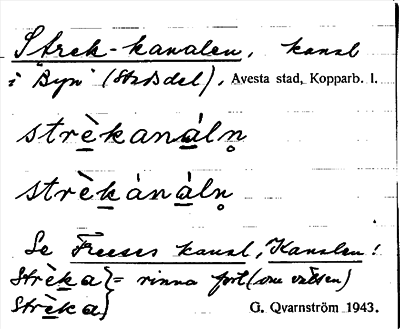 Strek-kanalen, kanal
i "Byn" (Stadsdel), Avesta stad, Kopparb. l.
strèkanáln̥
strèkànáln̥
Se Freeses kanal, Kanalen!
Strèka } = rinna fort (om vätsen)
Strèka }
G. Qvarnström 1943.